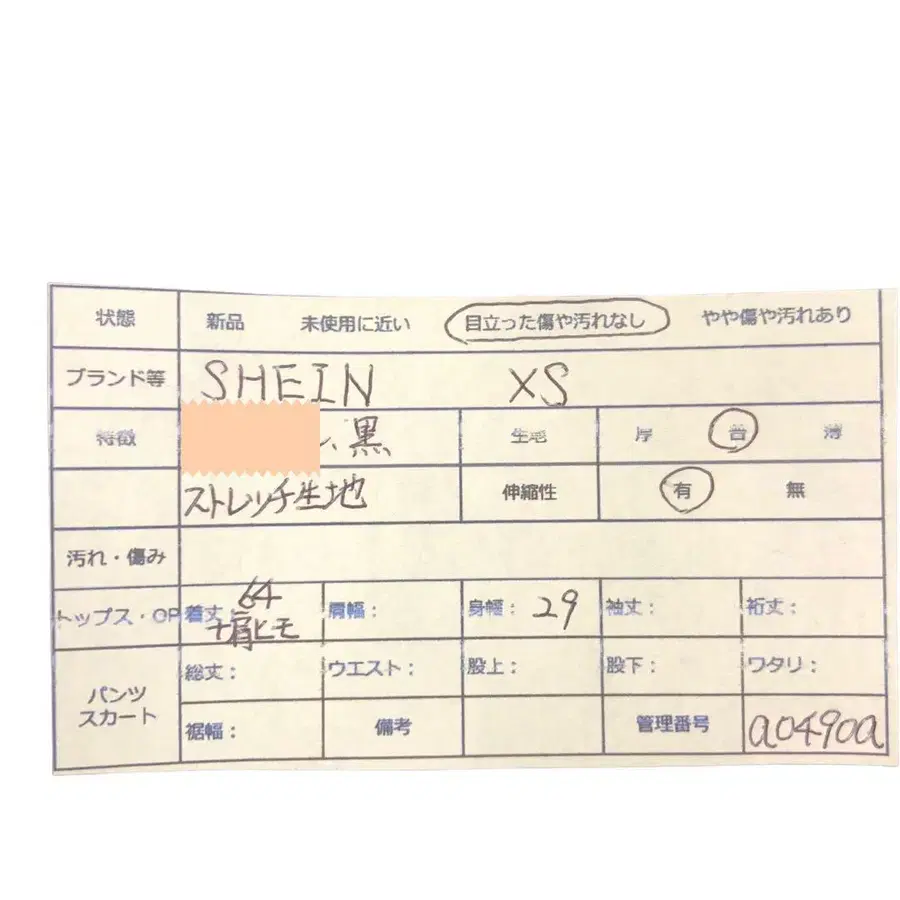 状態 新品 未使用に近い 目立った傷や汚れなし やや傷や汚れあり
ブランド等 SHEIN XS
特徴 、黒 生地 厚 普 薄
ストレッチ生地 伸縮性 有 無
汚れ・傷み
トップス・OP 着丈: 64 +肩ヒモ 肩幅: 身幅: 29 袖丈: 裄丈:
パンツ スカート 総丈: ウエスト: 股上: 股下: ワタリ:
裾幅: 備考 管理番号 a0490a